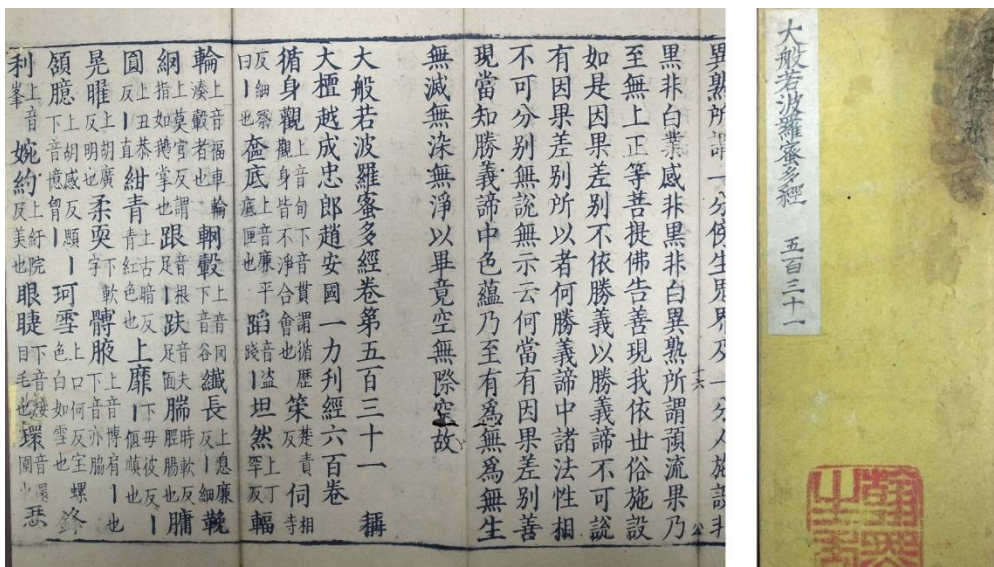 異熟所謂一分傍生鬼界及一分人施設非
十六　公
黑非白業感非黑非白異熟所謂預流果乃
至無上正等菩提佛告善現我依世俗施設
如是因果差別不依勝義以勝義諦不可說
有因果差別所以者何勝義諦中諸法性相
不可分別無說無示云何當有因果差別善
現當知勝義諦中色蘊乃至有爲無爲無生
無滅無染無淨以畢竟空無際空故
大般若波羅蜜多經卷第五百三十一　稱
大檀越成忠郎趙安國一力刊經六百卷
循身觀上音旬下音貫謂循歷觀身皆不淨合會也筞楚責反伺相寺
反細察曰丨也奩底上音廉平底匣也蹈音盗踐丨坦然上丁罕反輻
輪上音福車輪湊轂者也輞轂上音罔下音谷纖長上息廉反丨細鞔
網上莫官反謂指如鵝掌也跟音根足丨趺音夫足面腨時軟反脛腸也膅
圓上丑恭反丨直紺青上古暗反青紅色也上靡下毋彼反丨丨偃順也
晃曜上胡廣反明也柔耎下軟字髆腋上音博肩丨也下音亦脇
頷臆上胡感反頤丨下音憶胷丨珂雪上口何反宝螺色白如雪也鋒
利上音峯婉約上紆院反美也眼睫下音接目毛也環音還圍也惡
大般若波羅蜜多經　五百三十一